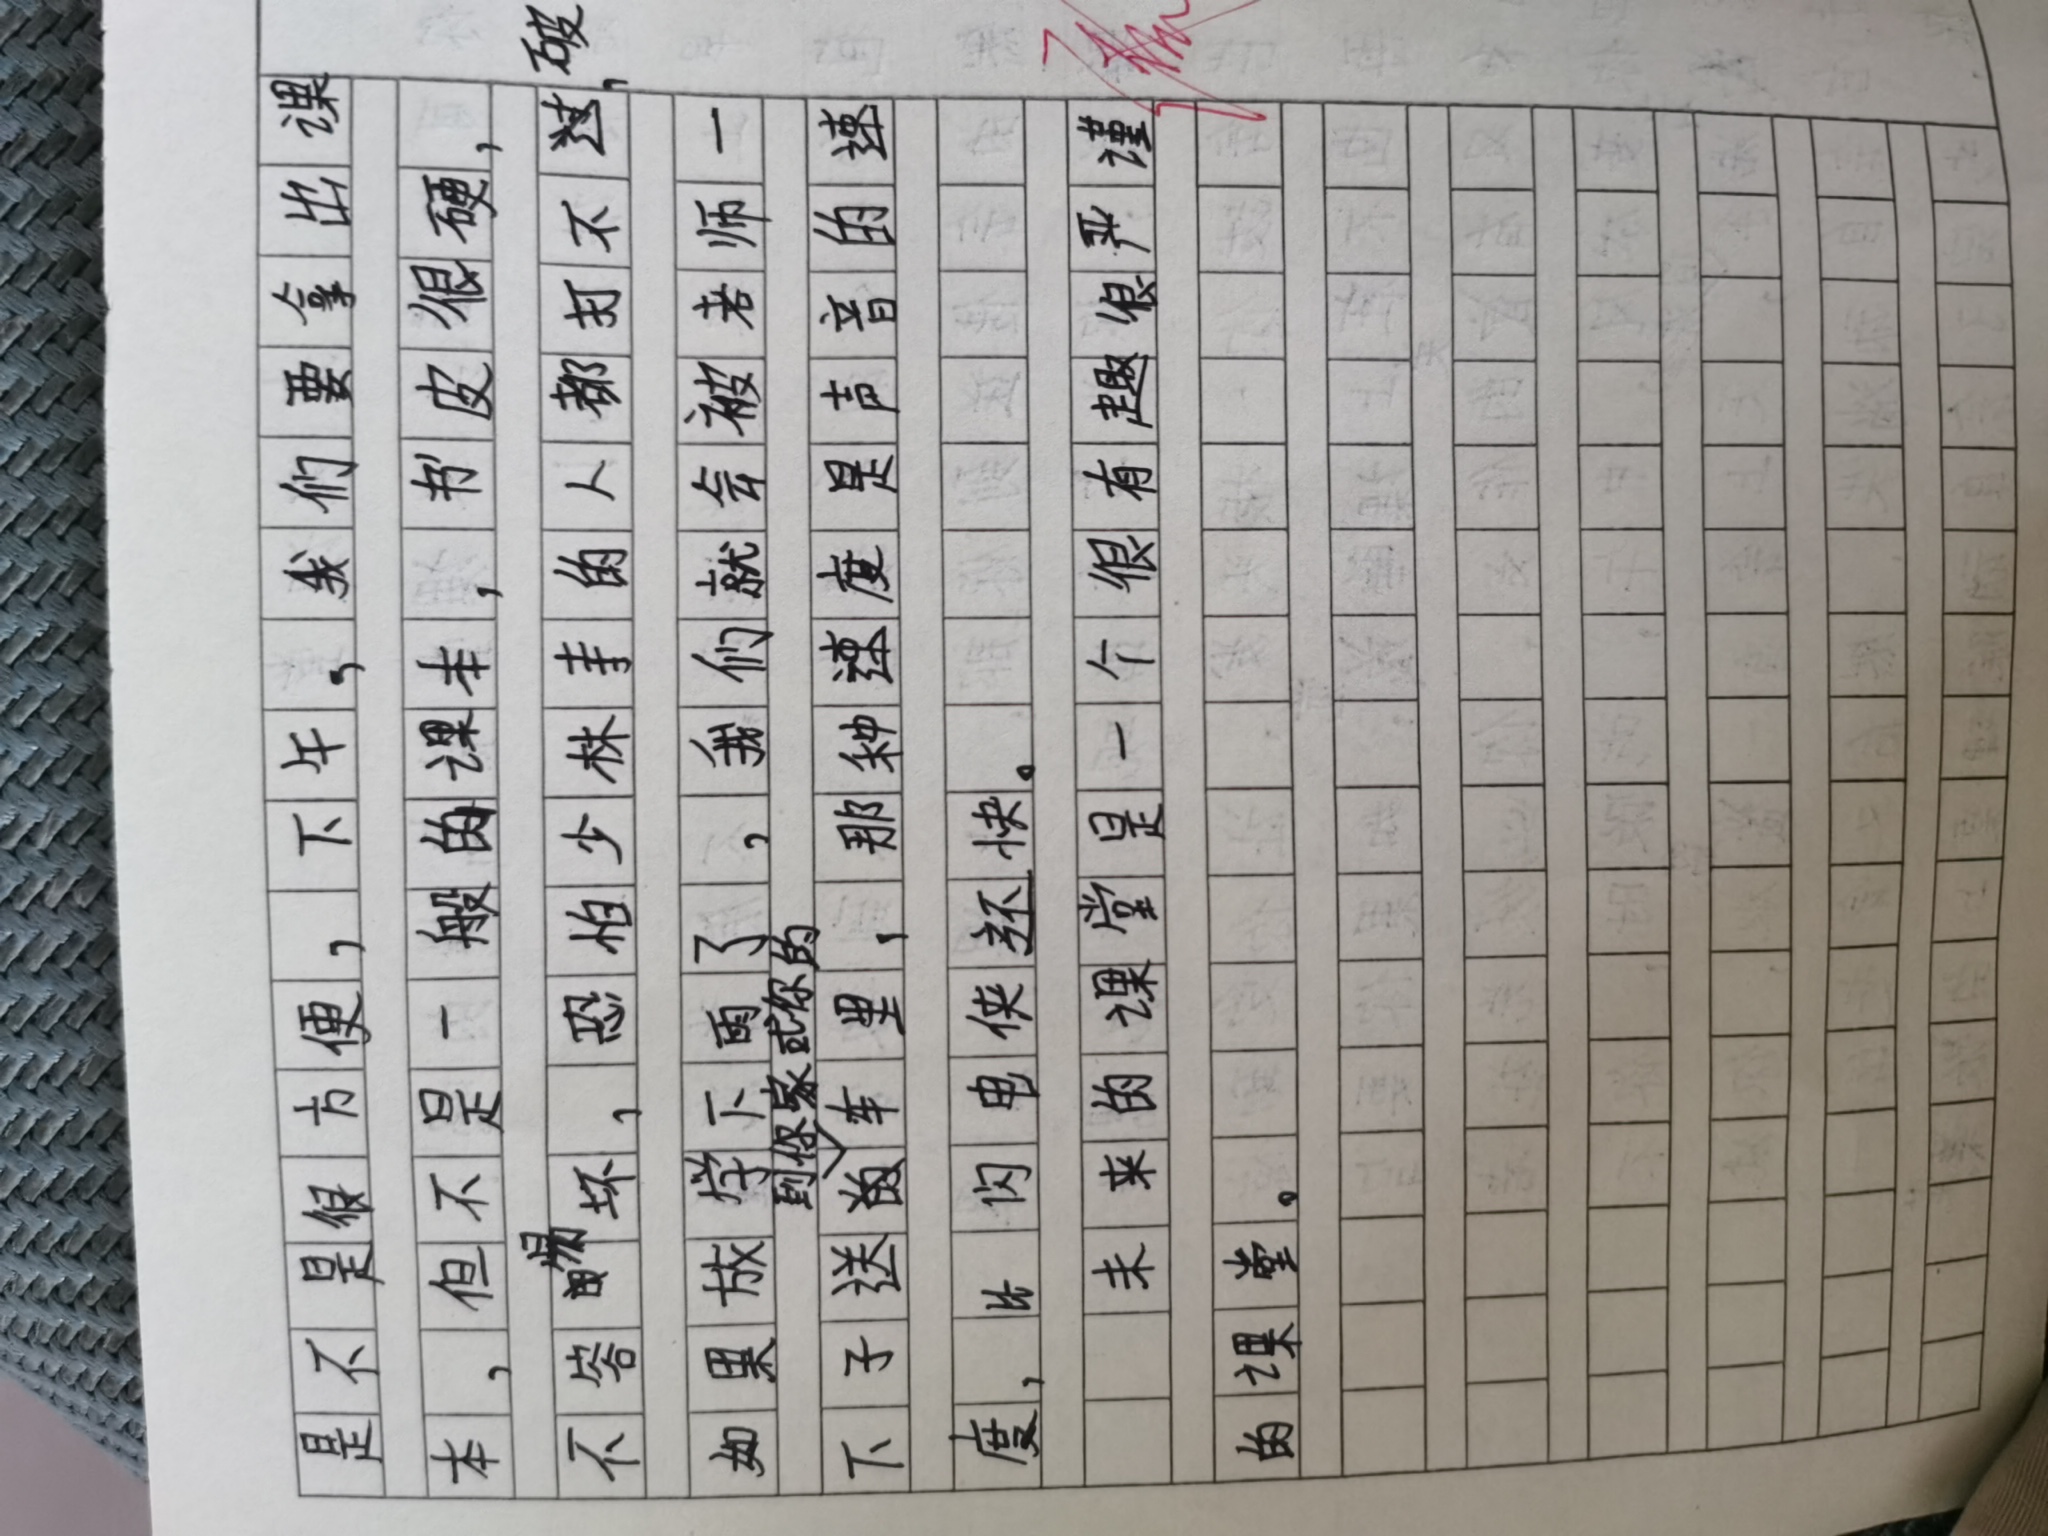 是不是很方便,下午,我们要拿出课
本,但不是一般的课本,书皮很硬,
不容易坏,恐怕少林寺的人都打不破,
如果放学下雨了,我们就会被老师一
下子送到你家或你的车里,那种速度是声音的速
度,比闪电侠还快。
未来的课堂是一个很有趣很严谨
的课堂。